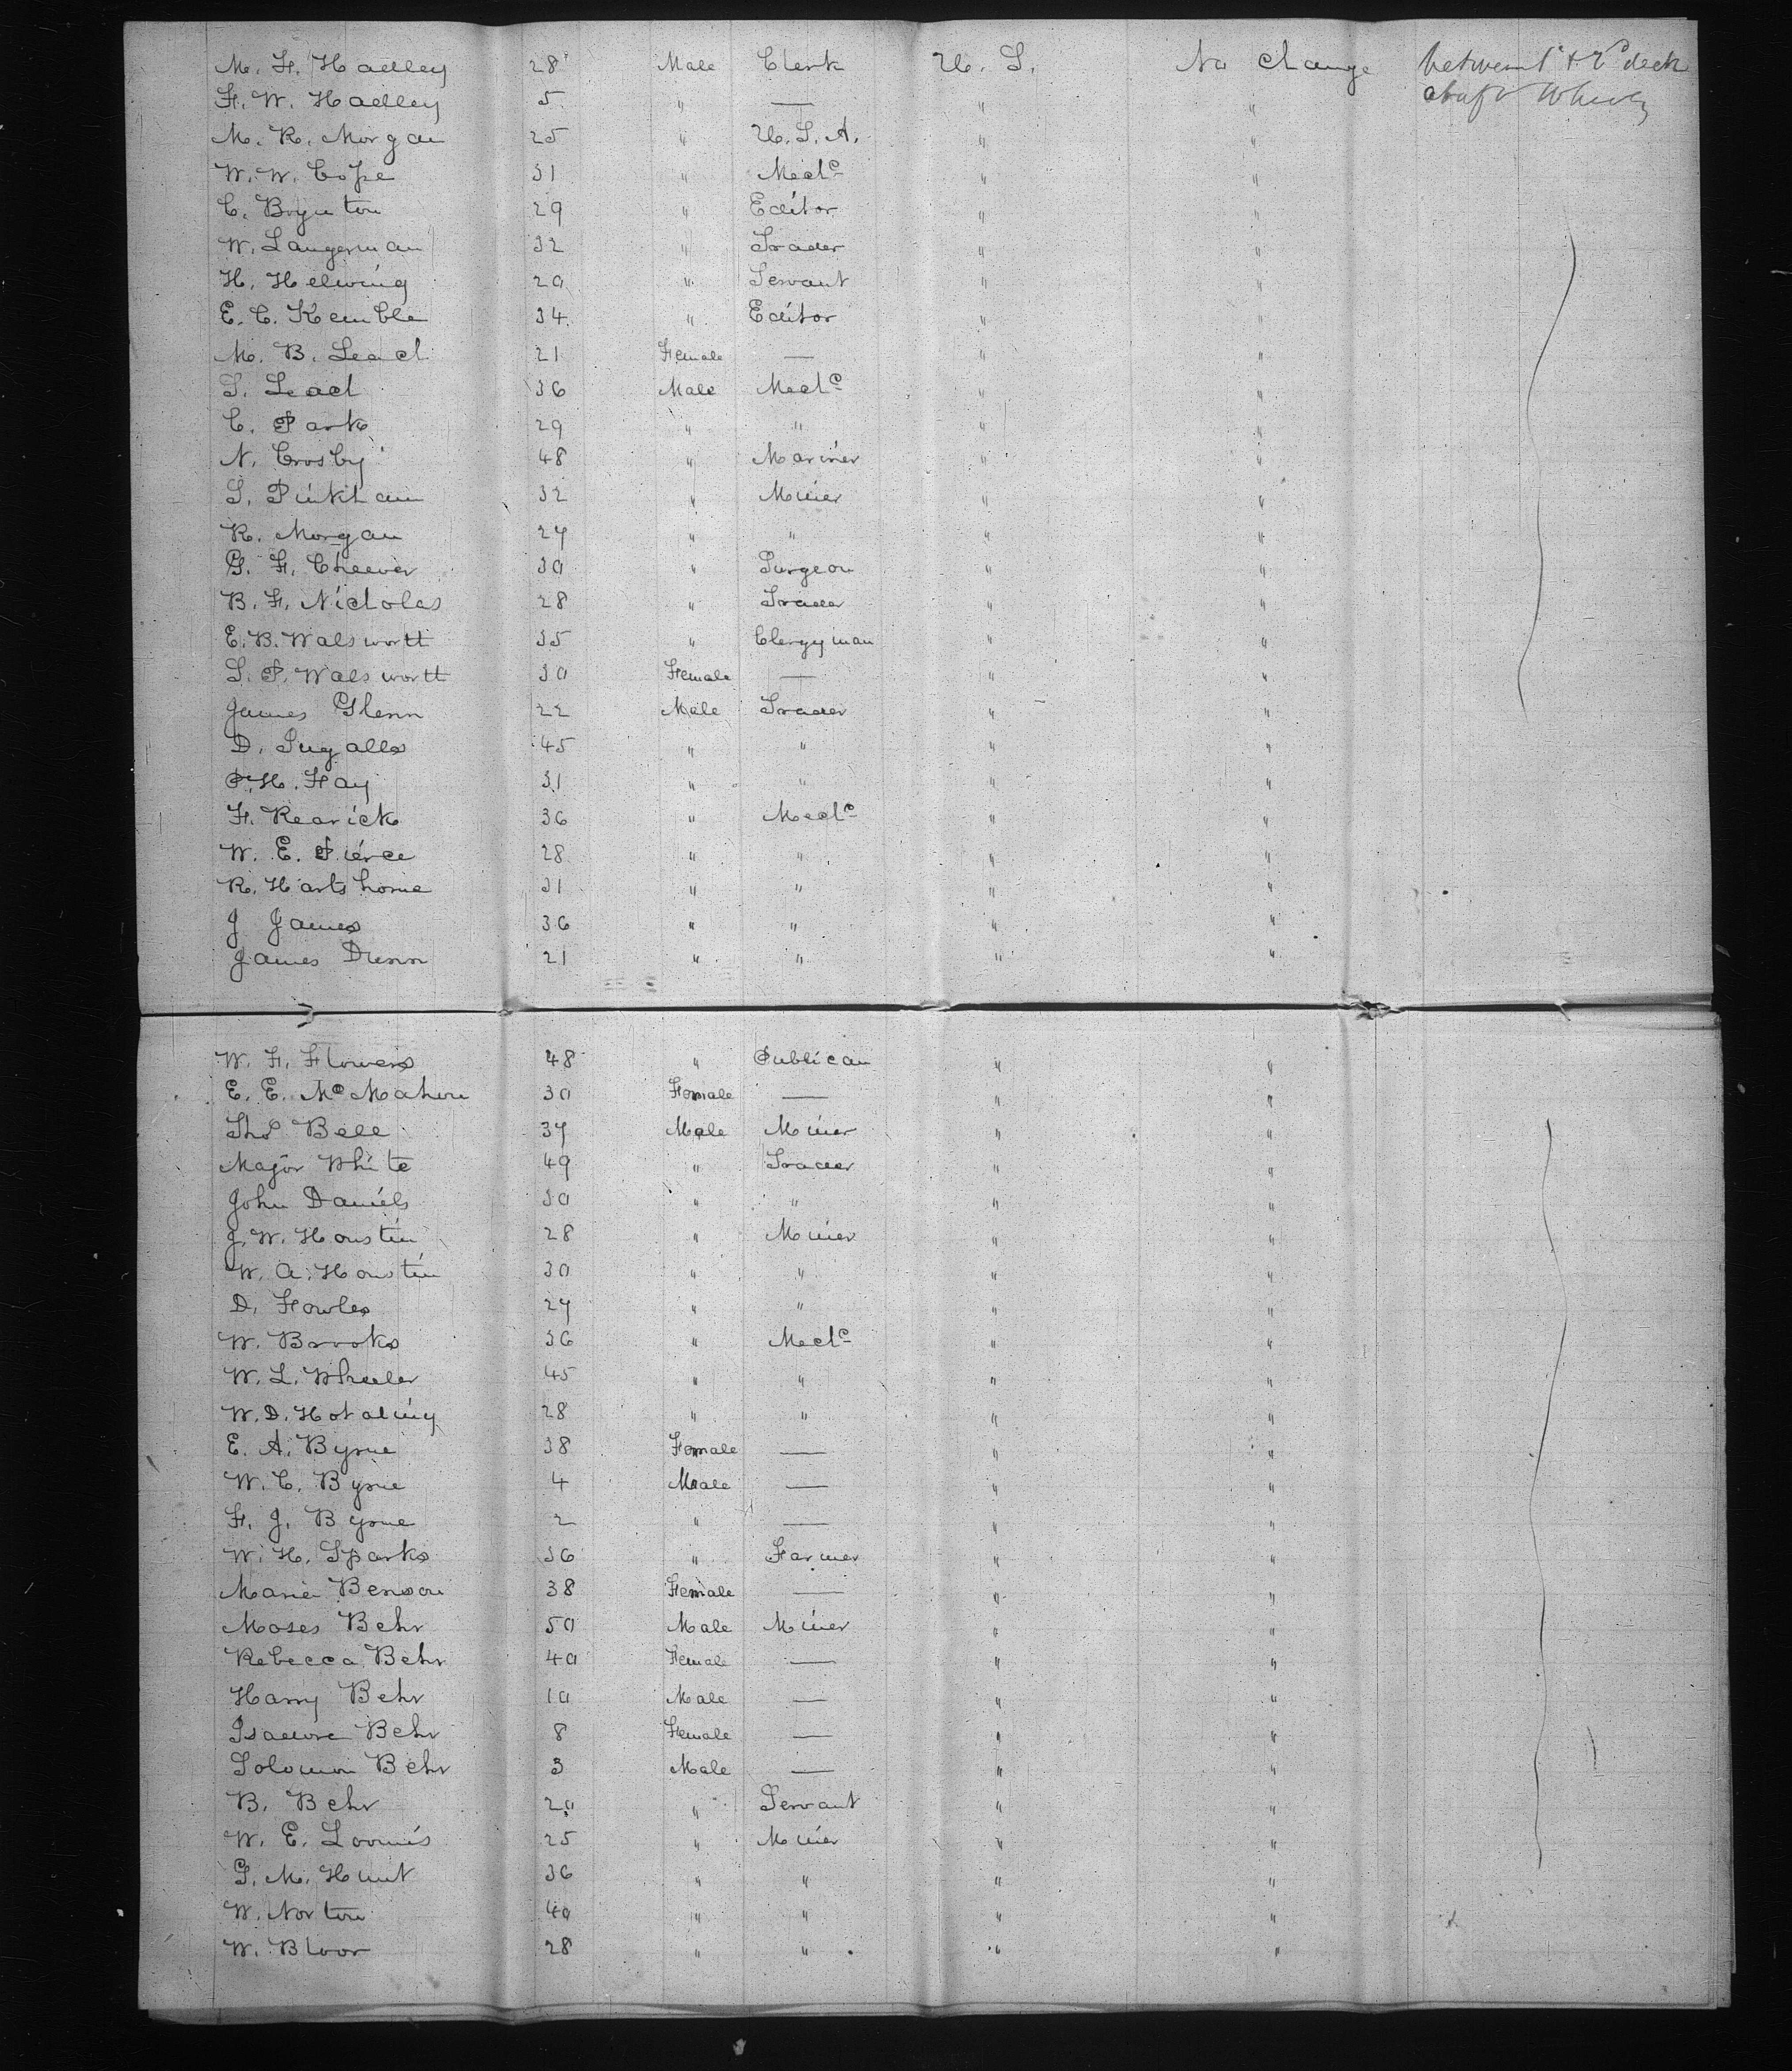 M. F. Hadley 28 Male Clerk U. S. No change between 1st & 2d deck
F. W. Hadley 5 " — " " abaft Wheels
M. R. Morgan 25 " U. S. A. " "
W. W. Cope 31 " Mechc " "
C. Boynton 29 " Editor " "
W. Langerman 32 " Trader " "
H. Helwing 20 " Servant " "
E. C. Kemble 34 " Editor " "
M. B. Leach 21 Female — " "
S. Leach 36 Male Mechc " "
C. Park 29 " " " "
N. Crosby 48 " Mariner " "
S. Pinkham 32 " Miner " "
R. Morgan 27 " " " "
G. F. Cheever 30 " Surgeon " "
B. F. Nicholas 28 " Trader " "
E. B. Walsworth 35 " Clergyman " "
S. P. Walsworth 30 Female — " "
James Glenn 22 Male Trader " "
D. Ingalls 45 " " " "
P. H. Fay 31 " " " "
F. Rearick 36 " Mechc " "
W. E. Pierce 28 " " " "
R. Hartshorne 31 " " " "
J James 36 " " " "
James Drenn 21 " " " "
W. F. Flowers 48 " Publican " "
E. E. McMahon 30 Female — " "
Thos Bell 37 Male Miner " "
Major White 49 " Trader " "
John Daniels 30 " " " "
J. W. Houstin 28 " Miner " "
W. A. Houstin 30 " " " "
D. Fowles 27 " " " "
W. Brooks 36 " Mechc " "
W. L. Wheeler 45 " " " "
W. D. Hotaling 28 " " " "
E. A. Byrne 38 Female — " "
W. C. Byrne 4 Male — " "
F. J. Byrne 2 " — " "
W. H. Sparks 36 " Farmer " "
Marie Benson 38 Female — " "
Moses Behr 50 Male Miner " "
Rebecca Behr 40 Female — " "
Harry Behr 10 Male — " "
Isadore Behr 8 Female — " "
Solomon Behr 3 Male — " "
B. Behr 20 " Servant " "
W. E. Loomis 25 " Miner " "
G. M. Hunt 36 " " " "
W. Norton 40 " " " "
W. Bloor 28 " " " "